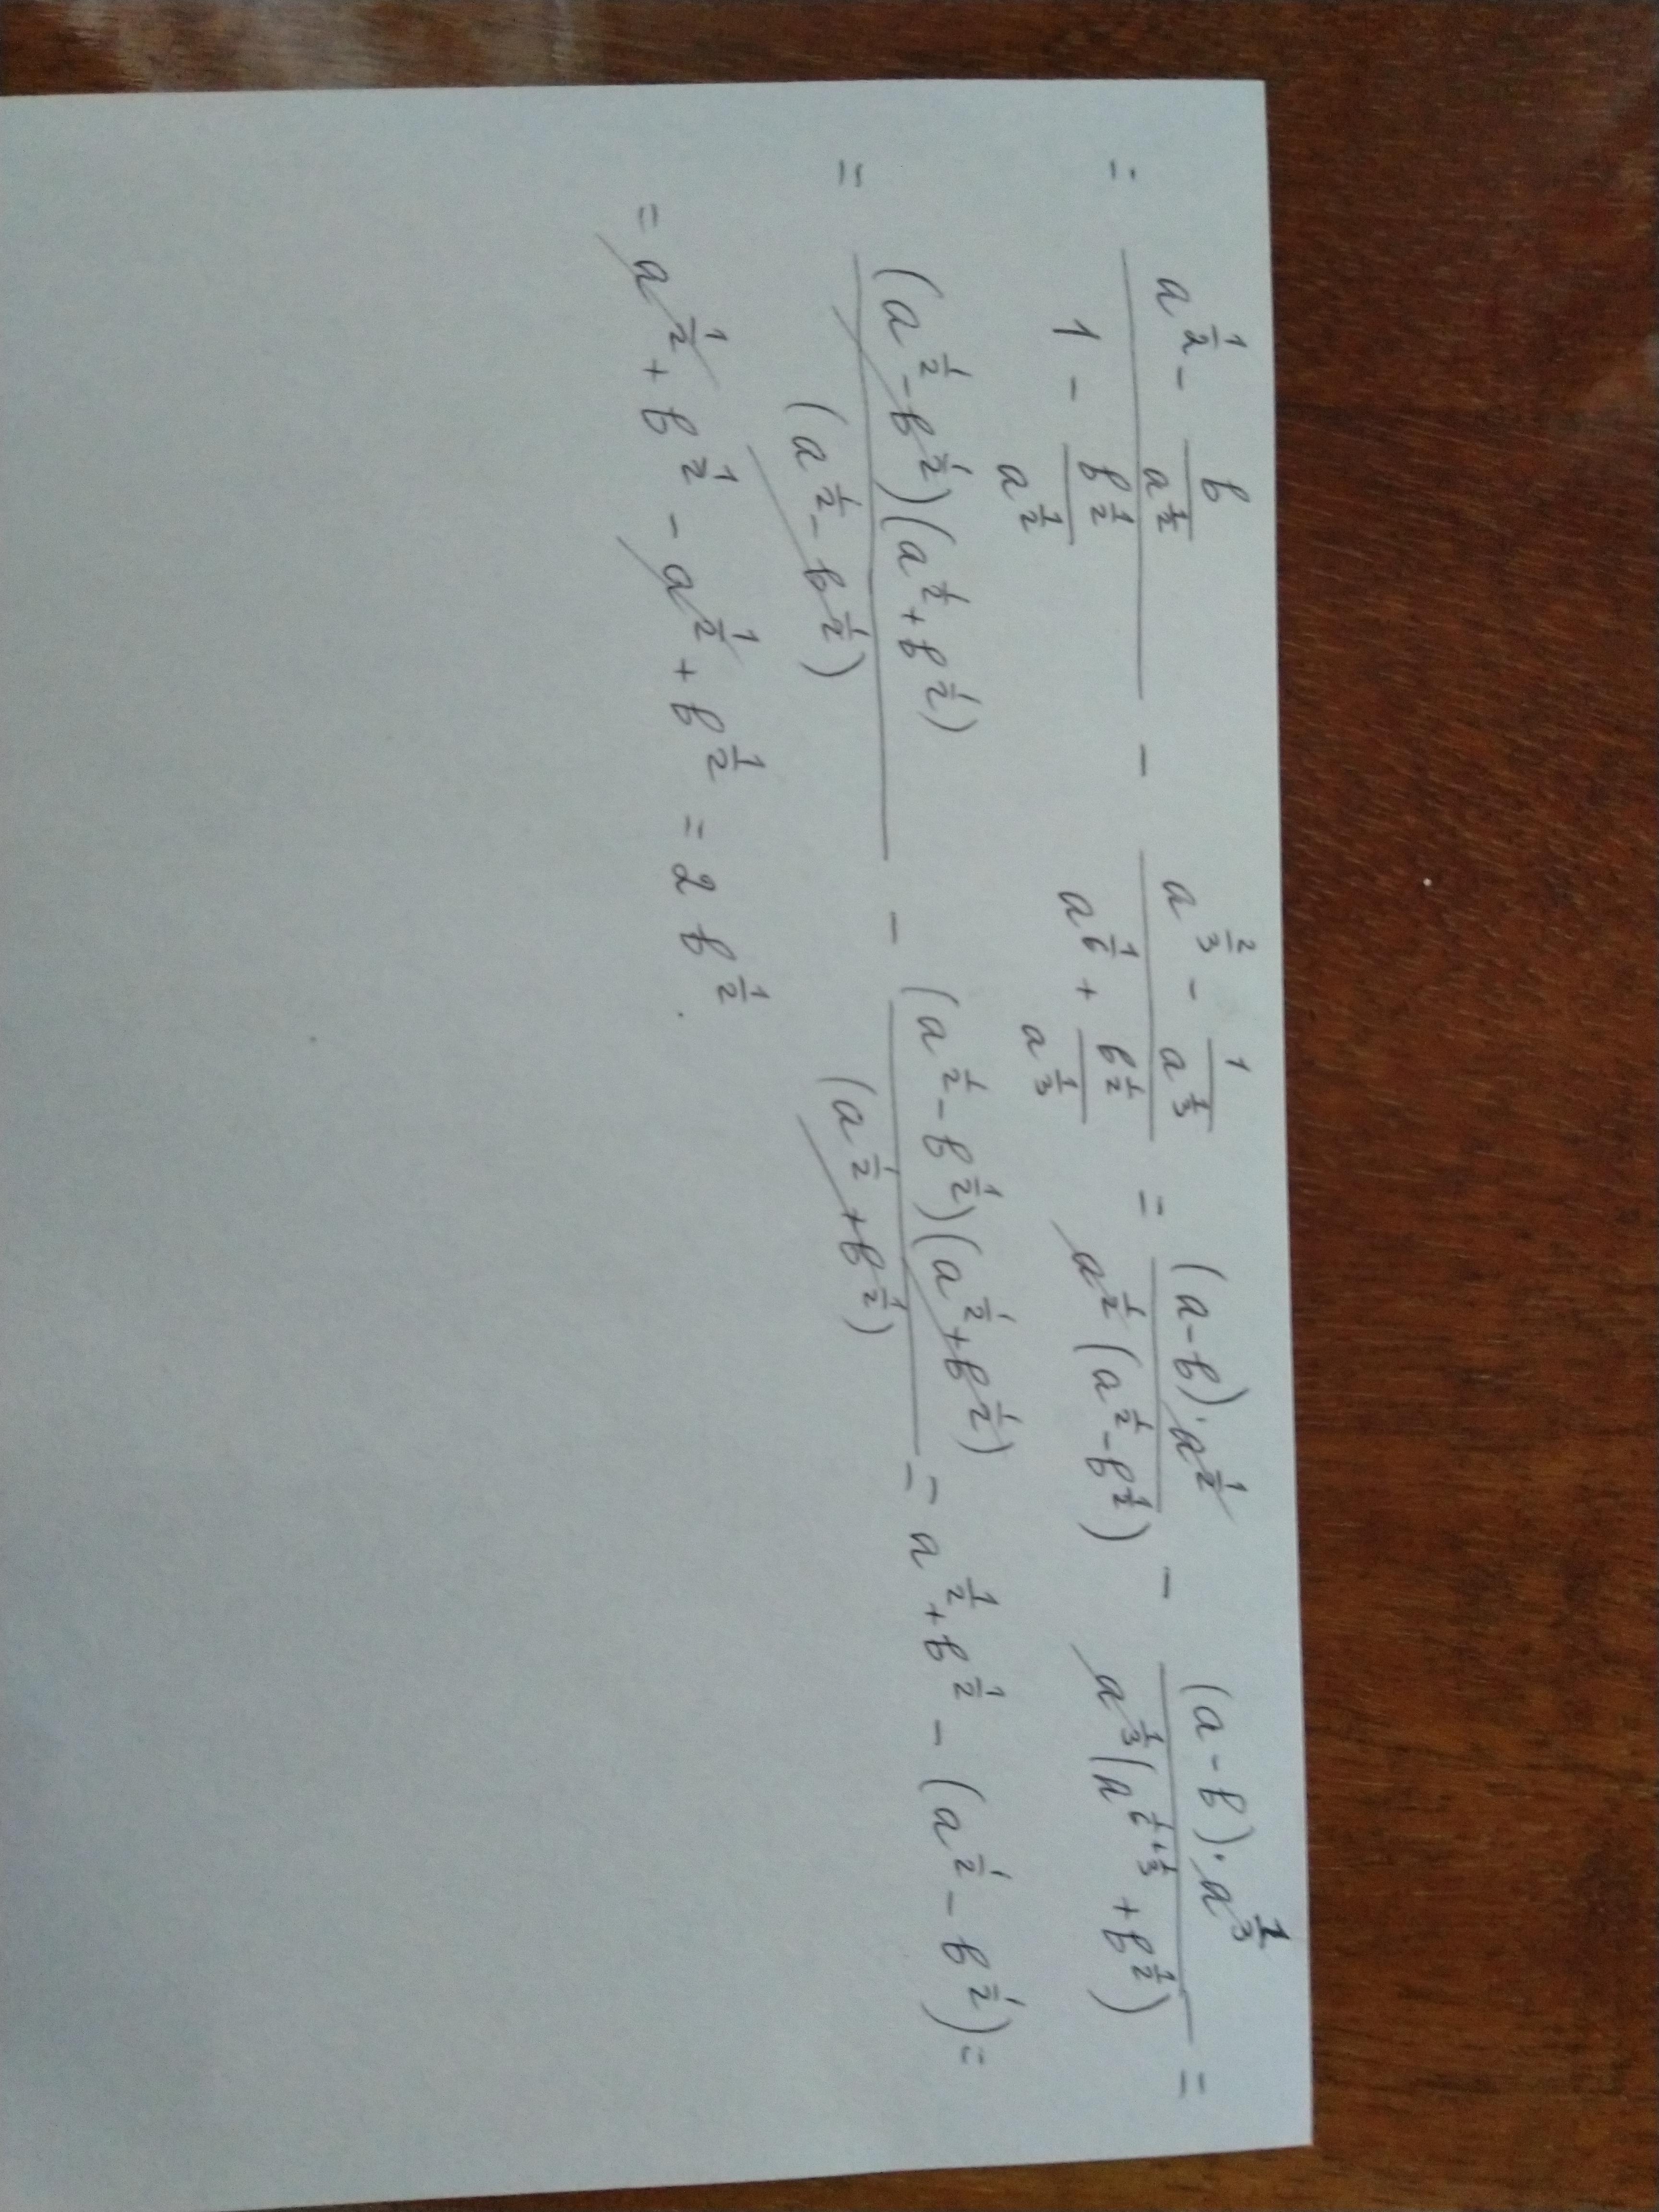 = (a^(1/2) - b/a^(1/2))/(1 - b^(1/2)/a^(1/2)) - (a^(2/3) - 1/a^(1/3))/(a^(1/6) + b^(1/2)/a^(1/3)) = ((a-b)·a^(1/2))/(a^(1/2)(a^(1/2)-b^(1/2))) - ((a-b)·a^(1/3))/(a^(1/3)(a^(1/6+1/3)+b^(1/2))) =
= ((a^(1/2)-b^(1/2))(a^(1/2)+b^(1/2)))/((a^(1/2)-b^(1/2))) - ((a^(1/2)-b^(1/2))(a^(1/2)+b^(1/2)))/((a^(1/2)+b^(1/2))) = a^(1/2)+b^(1/2) - (a^(1/2)-b^(1/2)) =
= a^(1/2) + b^(1/2) - a^(1/2) + b^(1/2) = 2 b^(1/2).